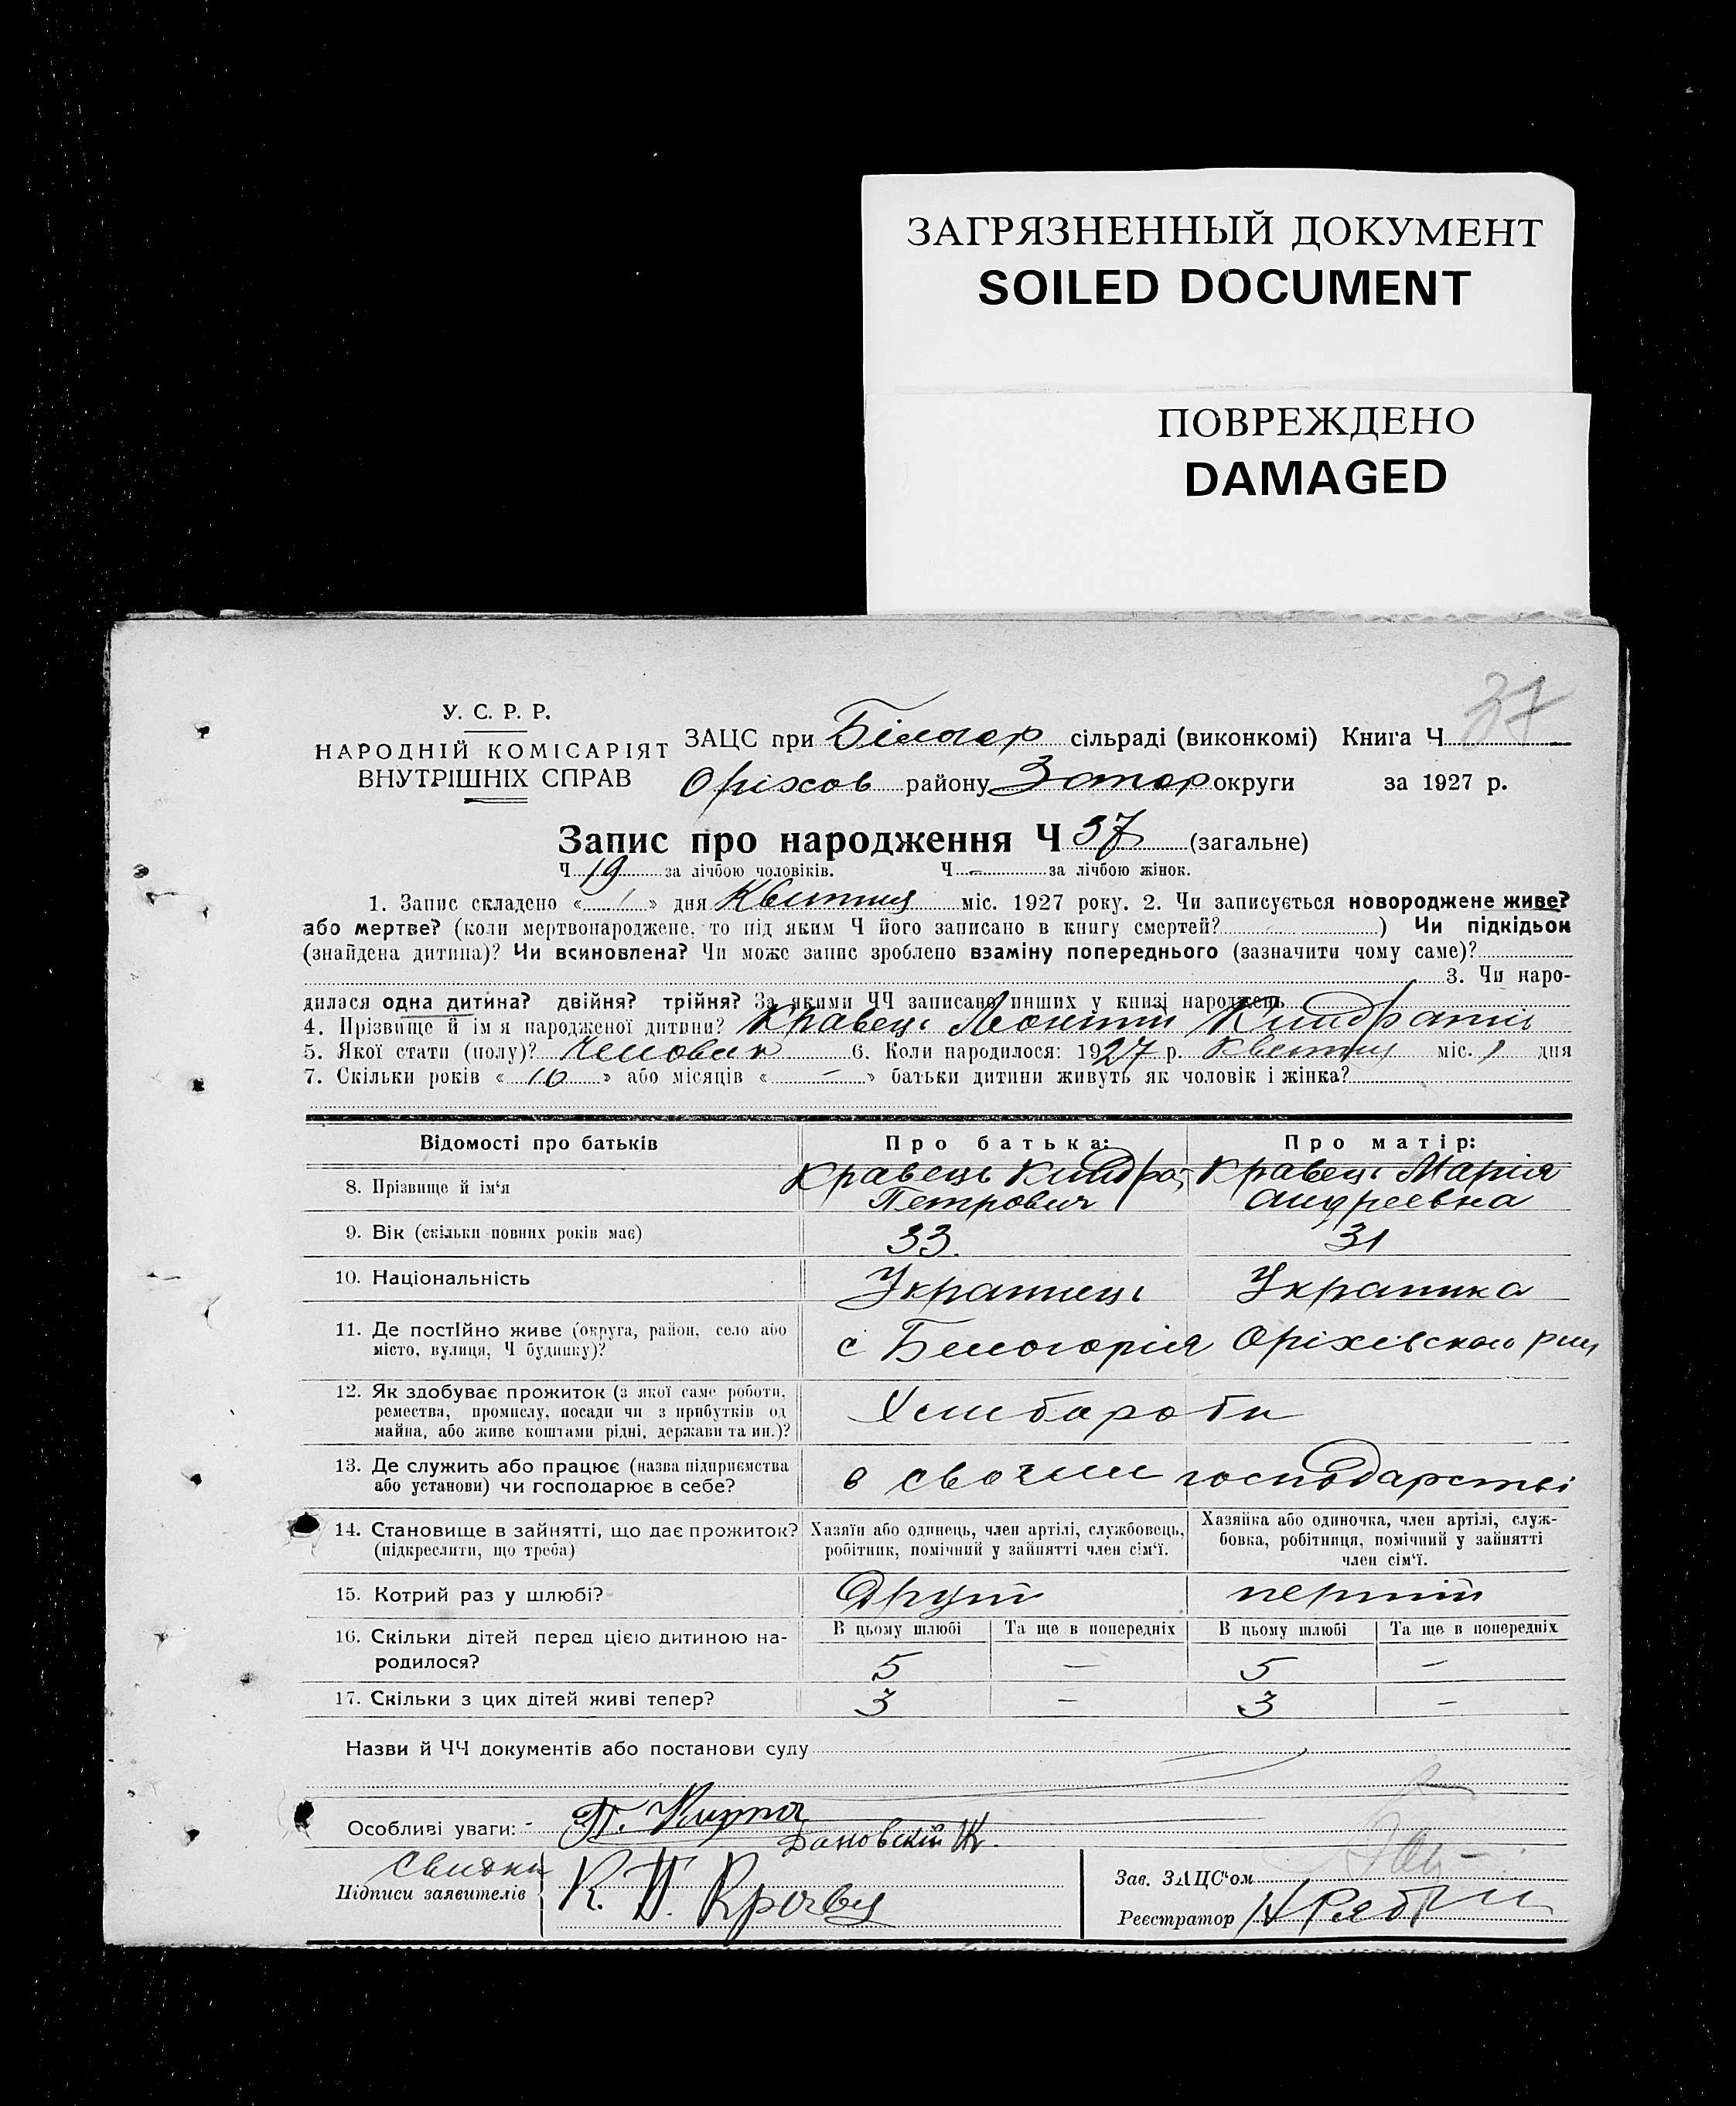 ЗАГРЯЗНЕННЫЙ ДОКУМЕНТ
SOILED DOCUMENT
ПОВРЕЖДЕНО
DAMAGED
37
У. С. Р. Р.
НАРОДНІЙ КОМІСАРІЯТ
ВНУТРІШНІХ СПРАВ
ЗАЦС при Білогор сільраді (виконкомі) Книга Ч
Оріхов району Запор округи за 1927 р.
Запис про народження Ч 37 (загальне)
Ч 19 за лічбою чоловіків. Ч — за лічбою жінок.
1. Запис складено « 1 » дня Квітня міс. 1927 року. 2. Чи записується новороджене живе?
або мертве? (коли мертвонароджене, то під яким Ч його записано в книгу смертей? ) Чи підкідьок
(знайдена дитина)? Чи всиновлена? Чи може запис зроблено взаміну попереднього (зазначити чому саме)?
3. Чи наро-
дилася одна дитина? двійня? трійня? За якими ЧЧ записано инших у книзі народжень
4. Прізвище й ім'я народженої дитини? Кравець
5. Якої стати (полу)? Человик 6. Коли народилося: 1927 р. Квітня міс. 1 дня
7. Скільки років « 10 » або місяців « — » батьки дитини живуть як чоловік і жінка?
Відомості про батьків Про батька: Про матір:
8. Прізвище й ім'я Кравець Киндрат Петрович Кравець Марія Андреевна
9. Вік (скільки повних років має) 33. 31
10. Національність Українець Українка
11. Де постІйно живе (округа, район, село або
місто, вулиця, Ч будинку)? с Белогорія Оріхівского рну
12. Як здобуває прожиток (з якої саме роботи,
ремества, промислу, посади чи з прибутків од
майна, або живе коштами рідні, держави та ин.)? Хлибароби
13. Де служить або працює (назва підприємства
або установи) чи господарює в себе? в своем господарстві
14. Становище в зайнятті, що дає прожиток?
(підкреслити, що треба)
Хазяїн або одинець, член артілі, службовець,
робітник, помічний у зайнятті член сім'ї.
Хазяйка або одиночка, член артілі, служ-
бовка, робітниця, помічний у зайнятті
член сім'ї.
15. Котрий раз у шлюбі? Другий перший
16. Скільки дітей перед цією дитиною на-
родилося?
В цьому шлюбі Та ще в попередніх В цьому шлюбі Та ще в попередніх
5 — 5 —
17. Скільки з цих дітей живі тепер? 3 — 3 —
Назви й ЧЧ документів або постанови суду
Особливі уваги:
Свидки
Підписи заявителів К. П. Кравец
Зав. ЗАЦС'ом
Реєстратор